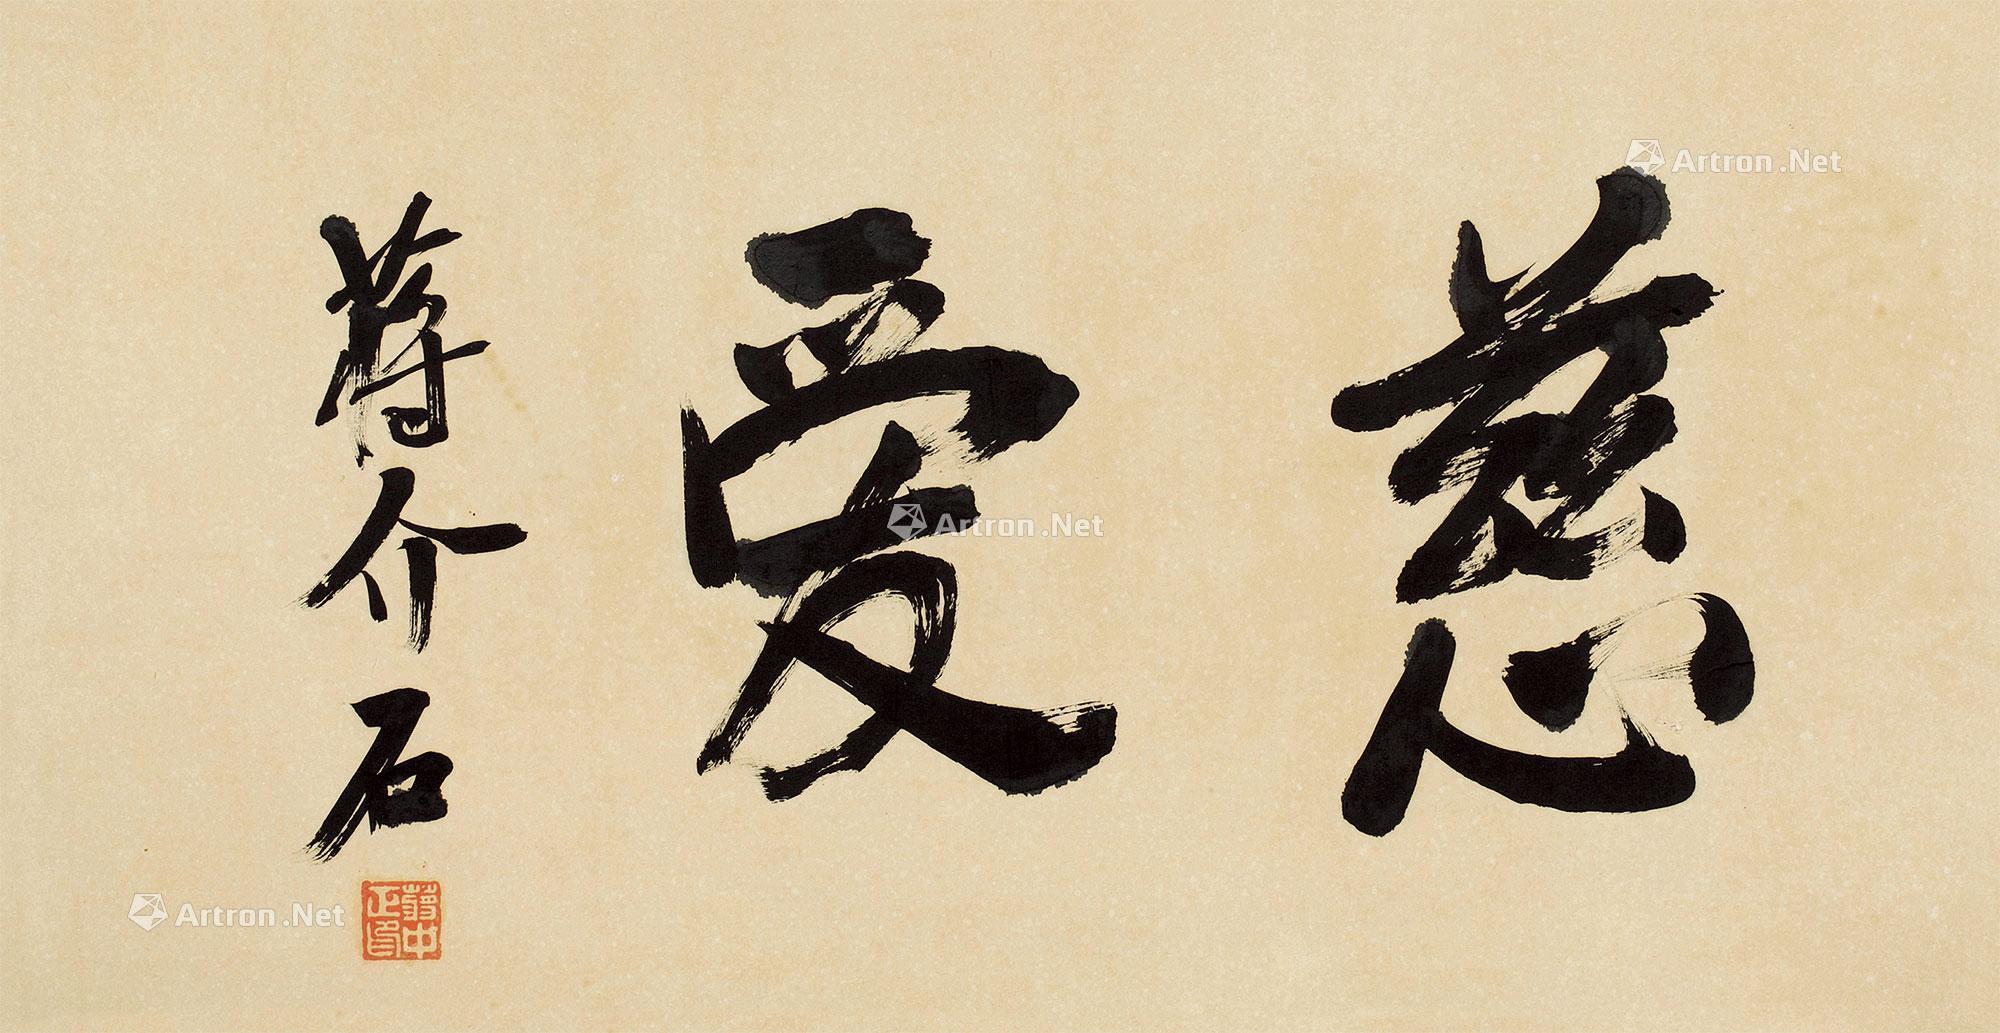 慈愛
蔣介石
蔣中正印
Artron.Net
Artron.Net
Artron.Net